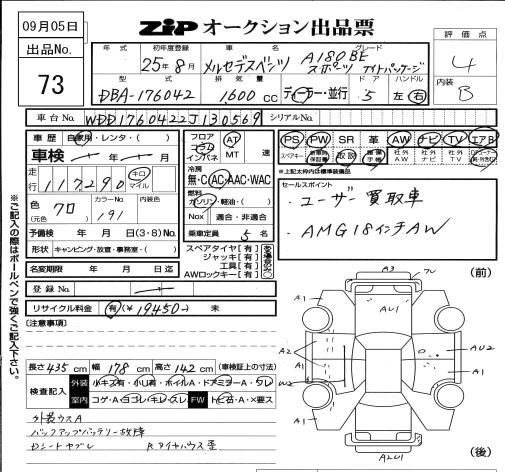 09月05日
ZIP オークション出品票
出品No.
73
評価点
4
内装
B
年式 初年度登録 車名 グレード
25年8月 メルセデスベンツ A180BE スポーツ ナイトパッケージ
型式 排気量 ドア ハンドル
DBA-176042 1,600 CC ディーラー・並行 5 左・右
車台No. WDD1760422J130569 シリアルNo.
車歴 自家用・レンタ・( )
車検 年 月
走行 117,290 キロ マイル
色 クロ (元色) カラーNo. 191 内装色
予備検 年 月 日(3・8)No.
形状 キャンピング・放置・事務室・( )
名変期限 年 月 日迄
登録No.
リサイクル料金 有(¥19,450-) 未
フロア コラム インパネ AT MT 速
冷房 無・C・AC・AAC・WAC
燃料 ガソリン・軽油・( )
Nox 適合・非適合
乗車定員 5 名
スペアタイヤ【有】
ジャッキ【有】
工具【有】
AWロックキー【有】
PS PW SR 革 AW ナビ TV エアB
スペアキー 新車時保証書 取説 記録手帳 社外AW 社外ナビ 社外TV
※上記太枠内は標準装備品
セールスポイント
・ユーザー買取車
・AMG18インチAW
※ご記入の際はボールペンで強くご記入下さい。
【注意事項】
長さ 435 cm 幅 178 cm 高さ 142 cm (車検証上の寸法)
検査記入 外装 小キズ有・小凹有・ホイルA・ドアミラーA・ウレ
室内 コゲ・A・ヨゴレ・キレ・スレ FW トビ石・A・×要ス
外装ウスA
バックアップバッテリー故障
Dシートヤブレ Rタイヤハウス歪
(前)
A3
フレ
A1
AU1
A1
A2
AU2
A1
A1
W2
A1
A1
A2U1
(後)